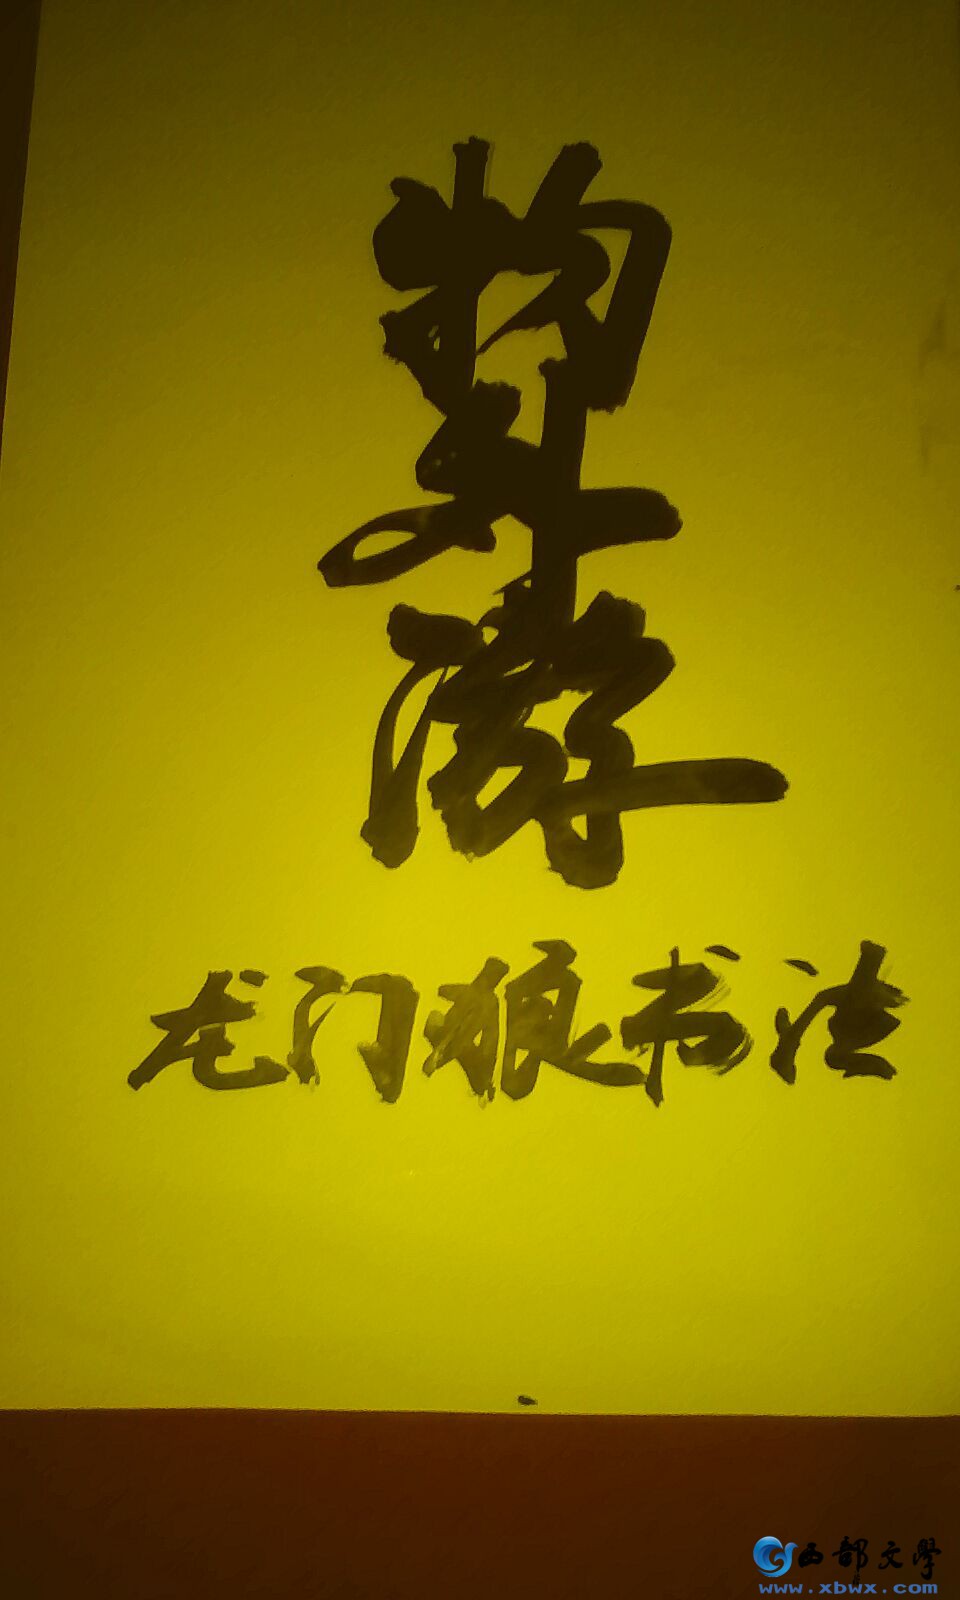 物外游
龙门狼书法
西部文學
www.xbwx.com